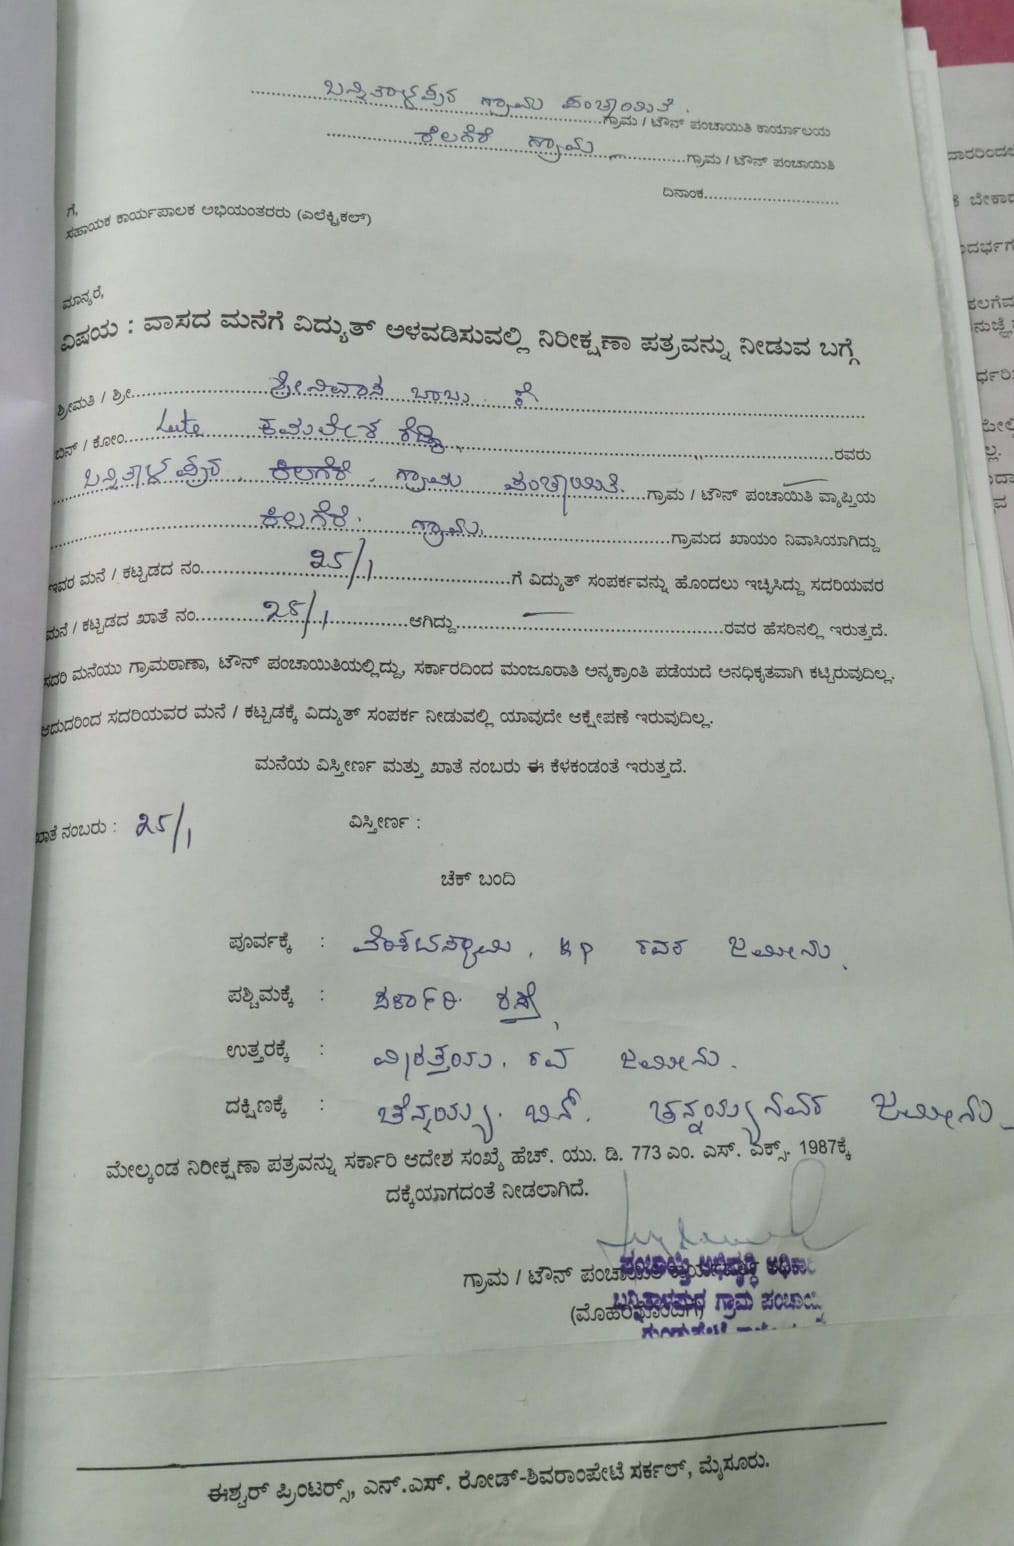 ಬನ್ನಿತಾಳಪುರ ಗ್ರಾಮ ಪಂಚಾಯಿತಿ.
ಗ್ರಾಮ / ಟೌನ್ ಪಂಚಾಯಿತಿ ಕಾರ್ಯಾಲಯ
ಕೆಲಗೆರೆ ಗ್ರಾಮ ಗ್ರಾಮ / ಟೌನ್ ಪಂಚಾಯಿತಿ
ದಿನಾಂಕ
ಗೆ,
ಸಹಾಯಕ ಕಾರ್ಯಪಾಲಕ ಅಭಿಯಂತರರು (ಎಲೆಕ್ಟ್ರಿಕಲ್)
ಮಾನ್ಯರೆ,
ವಿಷಯ : ವಾಸದ ಮನೆಗೆ ವಿದ್ಯುತ್ ಅಳವಡಿಸುವಲ್ಲಿ ನಿರೀಕ್ಷಣಾ ಪತ್ರವನ್ನು ನೀಡುವ ಬಗ್ಗೆ
ಶ್ರೀಮತಿ / ಶ್ರೀ. ಶ್ರೀನಿವಾಸ ಬಾಬು ಕೆ
ಬಿನ್ / ಕೋಂ. Late ಕಮಲೇಶ ರೆಡ್ಡಿ ರವರು
ಬನ್ನಿತಾಳಪುರ, ಕೆಲಗೆರೆ, ಗ್ರಾಮ ಪಂಚಾಯಿತಿ. ಗ್ರಾಮ / ಟೌನ್ ಪಂಚಾಯಿತಿ ವ್ಯಾಪ್ತಿಯ
ಕೆಲಗೆರೆ. ಗ್ರಾಮ. ಗ್ರಾಮದ ಖಾಯಂ ನಿವಾಸಿಯಾಗಿದ್ದು
ಇವರ ಮನೆ / ಕಟ್ಟಡದ ನಂ. 25/1 ಗೆ ವಿದ್ಯುತ್ ಸಂಪರ್ಕವನ್ನು ಹೊಂದಲು ಇಚ್ಛಿಸಿದ್ದು ಸದರಿಯವರ
ಮನೆ / ಕಟ್ಟಡದ ಖಾತೆ ನಂ. 25/1 ಆಗಿದ್ದು ರವರ ಹೆಸರಿನಲ್ಲಿ ಇರುತ್ತದೆ.
ಸದರಿ ಮನೆಯು ಗ್ರಾಮಠಾಣಾ, ಟೌನ್ ಪಂಚಾಯಿತಿಯಲ್ಲಿದ್ದು, ಸರ್ಕಾರದಿಂದ ಮಂಜೂರಾತಿ ಅನ್ಯಕ್ರಾಂತಿ ಪಡೆಯದೆ ಅನಧಿಕೃತವಾಗಿ ಕಟ್ಟಿರುವುದಿಲ್ಲ.
ಆದುದರಿಂದ ಸದರಿಯವರ ಮನೆ / ಕಟ್ಟಡಕ್ಕೆ ವಿದ್ಯುತ್ ಸಂಪರ್ಕ ನೀಡುವಲ್ಲಿ ಯಾವುದೇ ಆಕ್ಷೇಪಣೆ ಇರುವುದಿಲ್ಲ.
ಮನೆಯ ವಿಸ್ತೀರ್ಣ ಮತ್ತು ಖಾತೆ ನಂಬರು ಈ ಕೆಳಕಂಡಂತೆ ಇರುತ್ತದೆ.
ಖಾತೆ ನಂಬರು : 25/1 ವಿಸ್ತೀರ್ಣ :
ಚೆಕ್ ಬಂದಿ
ಪೂರ್ವಕ್ಕೆ : ವೆಂಕಟಸ್ವಾಮಿ, KP ರವರ ಜಮೀನು.
ಪಶ್ಚಿಮಕ್ಕೆ : ಸರ್ಕಾರಿ ರಸ್ತೆ,
ಉತ್ತರಕ್ಕೆ : ರವ ಜಮೀನು.
ದಕ್ಷಿಣಕ್ಕೆ : ಚೆನ್ನಯ್ಯ. ಬಿನ್. ಜಮೀನು
ಮೇಲ್ಕಂಡ ನಿರೀಕ್ಷಣಾ ಪತ್ರವನ್ನು ಸರ್ಕಾರಿ ಆದೇಶ ಸಂಖ್ಯೆ ಹೆಚ್. ಯು. ಡಿ. 773 ಎಂ. ಎಸ್. ಎಕ್ಸ್. 1987ಕ್ಕೆ
ದಕ್ಕೆಯಾಗದಂತೆ ನೀಡಲಾಗಿದೆ.
ಗ್ರಾಮ / ಟೌನ್ ಪಂಚಾಯಿತಿ
ಪಂಚಾಯ್ತಿ ಅಭಿವೃದ್ಧಿ ಅಧಿಕಾರಿ
ಬನ್ನಿತಾಳಪುರ ಗ್ರಾಮ ಪಂಚಾಯ್ತಿ
(ಮೊಹರಿನೊಂದಿಗೆ)
ಈಶ್ವರ್ ಪ್ರಿಂಟರ್ಸ್, ಎನ್.ಎಸ್. ರೋಡ್-ಶಿವರಾಂಪೇಟೆ ಸರ್ಕಲ್, ಮೈಸೂರು.